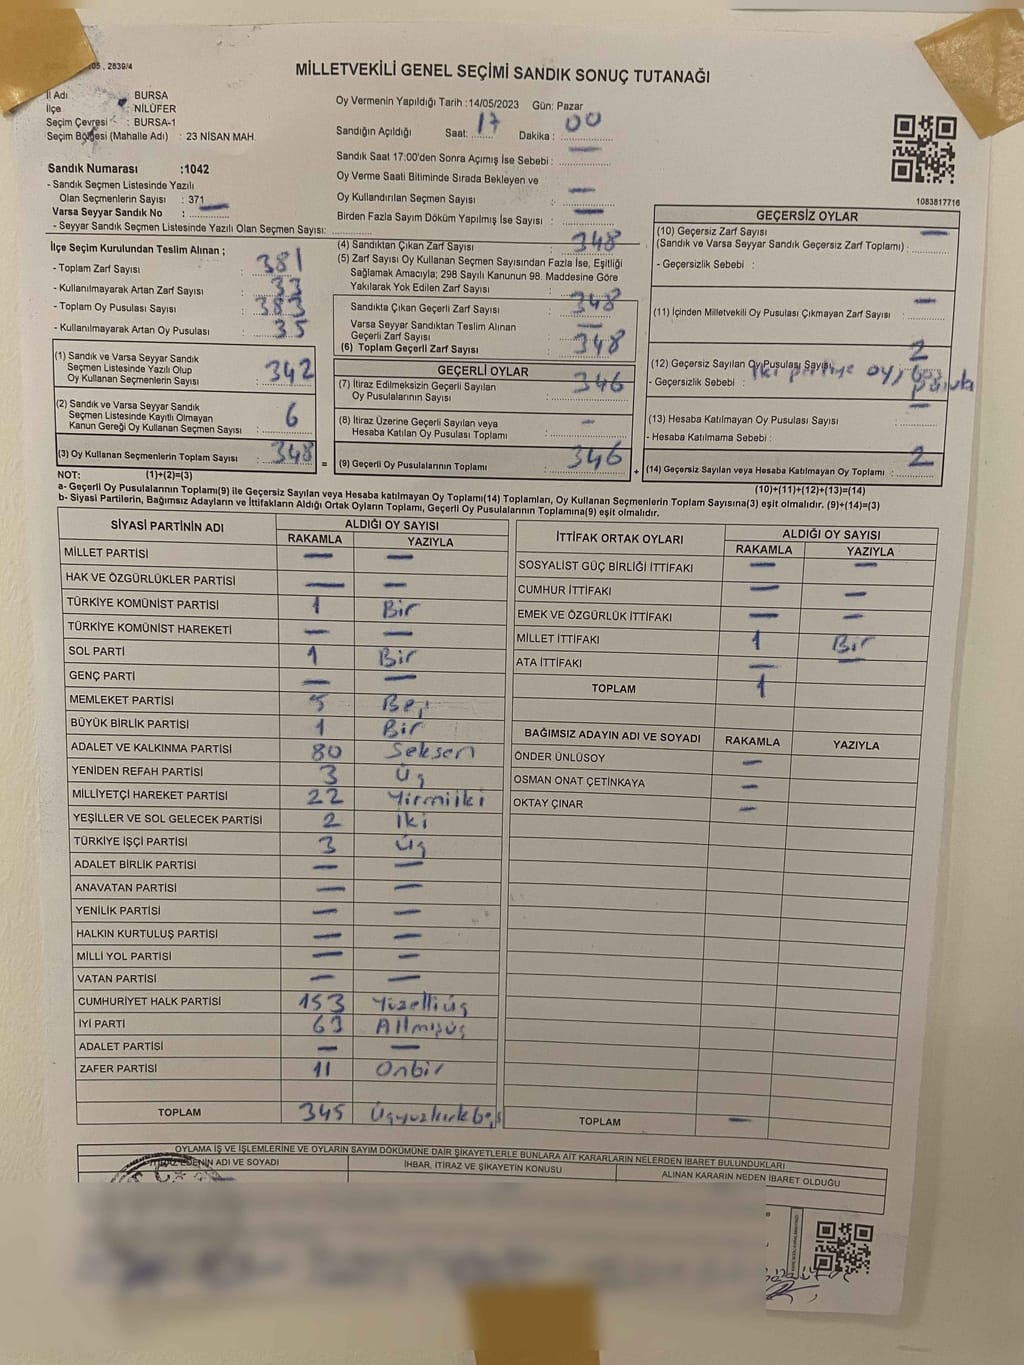 05 , 2839/4
MİLLETVEKİLİ GENEL SEÇİMİ SANDIK SONUÇ TUTANAĞI
İl Adı : BURSA
İlçe : NİLÜFER
Seçim Çevresi : BURSA-1
Seçim Bölgesi (Mahalle Adı) : 23 NİSAN MAH.
Oy Vermenin Yapıldığı Tarih :14/05/2023 Gün: Pazar
Sandığın Açıldığı Saat: 17 Dakika : 00
Sandık Saat 17:00'den Sonra Açımış İse Sebebi : —
Oy Verme Saati Bitiminde Sırada Bekleyen ve
Oy Kullandırılan Seçmen Sayısı : —
Birden Fazla Sayım Döküm Yapılmış İse Sayısı : —
Sandık Numarası :1042
- Sandık Seçmen Listesinde Yazılı
Olan Seçmenlerin Sayısı : 371
Varsa Seyyar Sandık No : —
- Seyyar Sandık Seçmen Listesinde Yazılı Olan Seçmen Sayısı: ..............
1083817716
İlçe Seçim Kurulundan Teslim Alınan ;
- Toplam Zarf Sayısı : 381
- Kullanılmayarak Artan Zarf Sayısı : 33
- Toplam Oy Pusulası Sayısı : 383
- Kullanılmayarak Artan Oy Pusulası : 35
(1) Sandık ve Varsa Seyyar Sandık
Seçmen Listesinde Yazılı Olup
Oy Kullanan Seçmenlerin Sayısı : 342
(2) Sandık ve Varsa Seyyar Sandık
Seçmen Listesinde Kayıtlı Olmayan
Kanun Gereği Oy Kullanan Seçmen Sayısı : 6
(3) Oy Kullanan Seçmenlerin Toplam Sayısı : 348
(4) Sandıktan Çıkan Zarf Sayısı : 348
(5) Zarf Sayısı Oy Kullanan Seçmen Sayısından Fazla İse, Eşitliği
Sağlamak Amacıyla; 298 Sayılı Kanunun 98. Maddesine Göre
Yakılarak Yok Edilen Zarf Sayısı : —
Sandıkta Çıkan Geçerli Zarf Sayısı : 348
Varsa Seyyar Sandıktan Teslim Alınan
Geçerli Zarf Sayısı : —
(6) Toplam Geçerli Zarf Sayısı : 348
GEÇERLİ OYLAR
(7) İtiraz Edilmeksizin Geçerli Sayılan
Oy Pusulalarının Sayısı : 346
(8) İtiraz Üzerine Geçerli Sayılan veya
Hesaba Katılan Oy Pusulası Toplamı : —
= (9) Geçerli Oy Pusulalarının Toplamı : 346
GEÇERSİZ OYLAR
(10) Geçersiz Zarf Sayısı
(Sandık ve Varsa Seyyar Sandık Geçersiz Zarf Toplamı) : —
- Geçersizlik Sebebi :
(11) İçinden Milletvekili Oy Pusulası Çıkmayan Zarf Sayısı : —
(12) Geçersiz Sayılan Oy Pusulası Sayısı 2
- Geçersizlik Sebebi : iki partiye oy,
(13) Hesaba Katılmayan Oy Pusulası Sayısı : —
- Hesaba Katılmama Sebebi :
+ (14) Geçersiz Sayılan veya Hesaba Katılmayan Oy Toplamı : 2
NOT: (1)+(2)=(3)
(10)+(11)+(12)+(13)=(14)
a- Geçerli Oy Pusulalarının Toplamı(9) ile Geçersiz Sayılan veya Hesaba katılmayan Oy Toplamı(14) Toplamları, Oy Kullanan Seçmenlerin Toplam Sayısına(3) eşit olmalıdır. (9)+(14)=(3)
b- Siyasi Partilerin, Bağımsız Adayların ve İttifakların Aldığı Ortak Oyların Toplamı, Geçerli Oy Pusulalarının Toplamına(9) eşit olmalıdır.
SİYASİ PARTİNİN ADI ALDIĞI OY SAYISI
RAKAMLA YAZIYLA
MİLLET PARTİSİ — —
HAK VE ÖZGÜRLÜKLER PARTİSİ — —
TÜRKİYE KOMÜNİST PARTİSİ 1 Bir
TÜRKİYE KOMÜNİST HAREKETİ — —
SOL PARTİ 1 Bir
GENÇ PARTİ — —
MEMLEKET PARTİSİ 5 Beş
BÜYÜK BİRLİK PARTİSİ 1 Bir
ADALET VE KALKINMA PARTİSİ 80 Seksen
YENİDEN REFAH PARTİSİ 3 Üç
MİLLİYETÇİ HAREKET PARTİSİ 22 Yirmiiki
YEŞİLLER VE SOL GELECEK PARTİSİ 2 İki
TÜRKİYE İŞÇİ PARTİSİ 3 Üç
ADALET BİRLİK PARTİSİ — —
ANAVATAN PARTİSİ — —
YENİLİK PARTİSİ — —
HALKIN KURTULUŞ PARTİSİ — —
MİLLİ YOL PARTİSİ — —
VATAN PARTİSİ — —
CUMHURİYET HALK PARTİSİ 153 Yüzelliüç
İYİ PARTİ 63 Altmışüç
ADALET PARTİSİ — —
ZAFER PARTİSİ 11 Onbir
TOPLAM 345 Üçyüzkırkbeş
İTTİFAK ORTAK OYLARI ALDIĞI OY SAYISI
RAKAMLA YAZIYLA
SOSYALİST GÜÇ BİRLİĞİ İTTİFAKI — —
CUMHUR İTTİFAKI — —
EMEK VE ÖZGÜRLÜK İTTİFAKI — —
MİLLET İTTİFAKI 1 Bir
ATA İTTİFAKI — —
TOPLAM 1
BAĞIMSIZ ADAYIN ADI VE SOYADI RAKAMLA YAZIYLA
ÖNDER ÜNLÜSOY —
OSMAN ONAT ÇETİNKAYA —
OKTAY ÇINAR —
TOPLAM —
OYLAMA İŞ VE İŞLEMLERİNE VE OYLARIN SAYIM DÖKÜMÜNE DAİR ŞİKAYETLERLE BUNLARA AİT KARARLARIN NELERDEN İBARET BULUNDUKLARI
İTİRAZ EDENİN ADI VE SOYADI İHBAR, İTİRAZ VE ŞİKAYETİN KONUSU ALINAN KARARIN NEDEN İBARET OLDUĞU